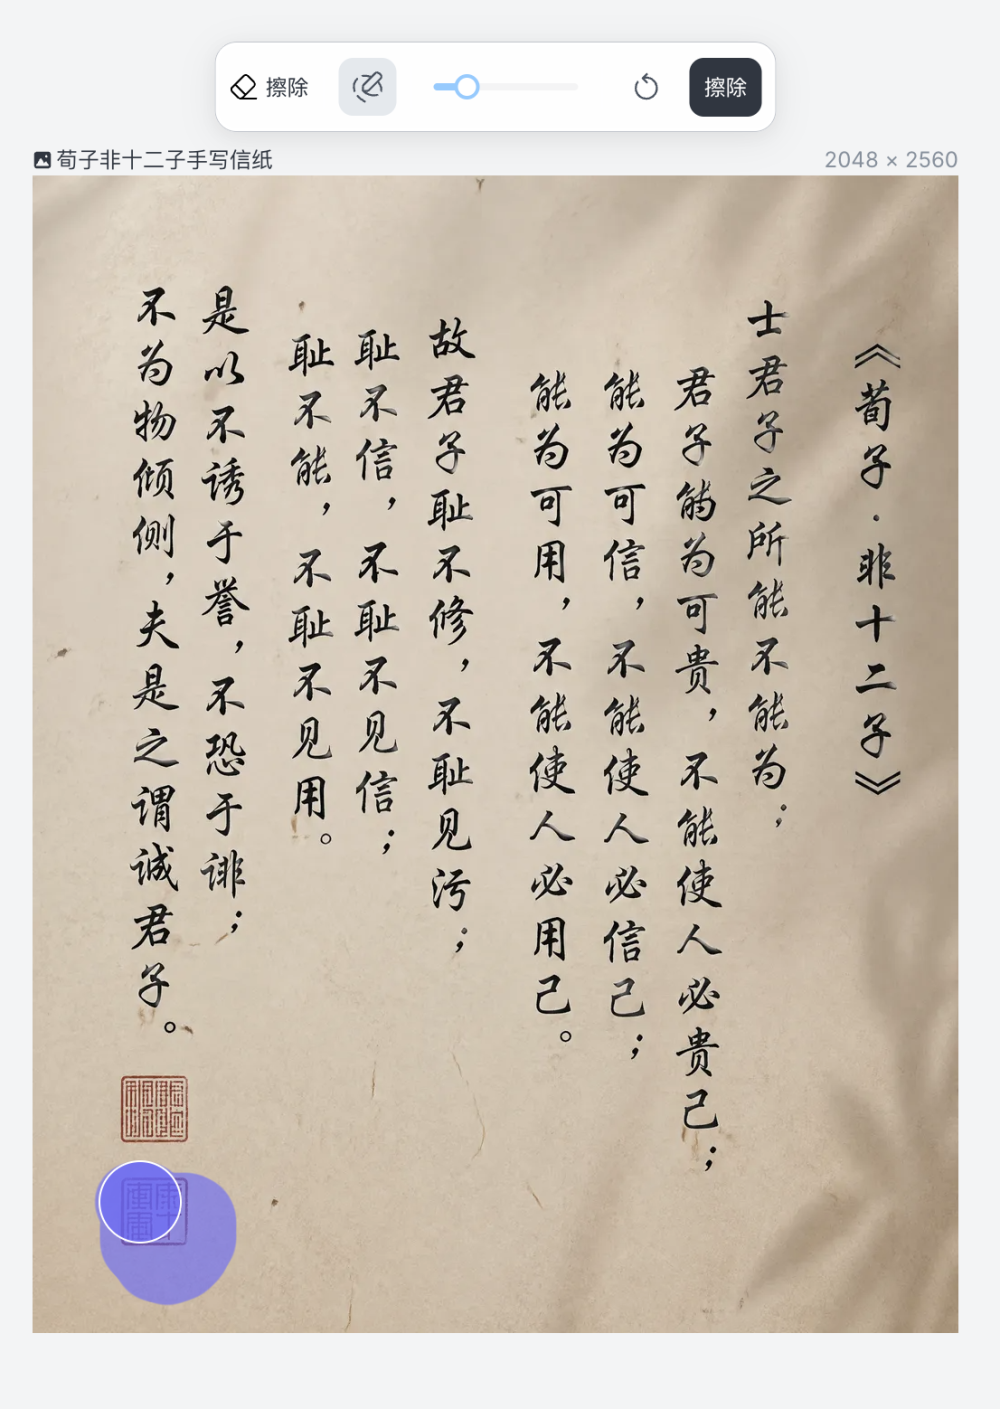 擦除
擦除
荀子非十二子手写信纸
2048 × 2560
《荀子·非十二子》
士君子之所能不能为；
君子能为可贵，不能使人必贵己；
能为可信，不能使人必信己；
能为可用，不能使人必用己。
故君子耻不修，不耻见污；
耻不信，不耻不见信；
耻不能，不耻不见用。
是以不诱于誉，不恐于诽；
不为物倾侧，夫是之谓诚君子。